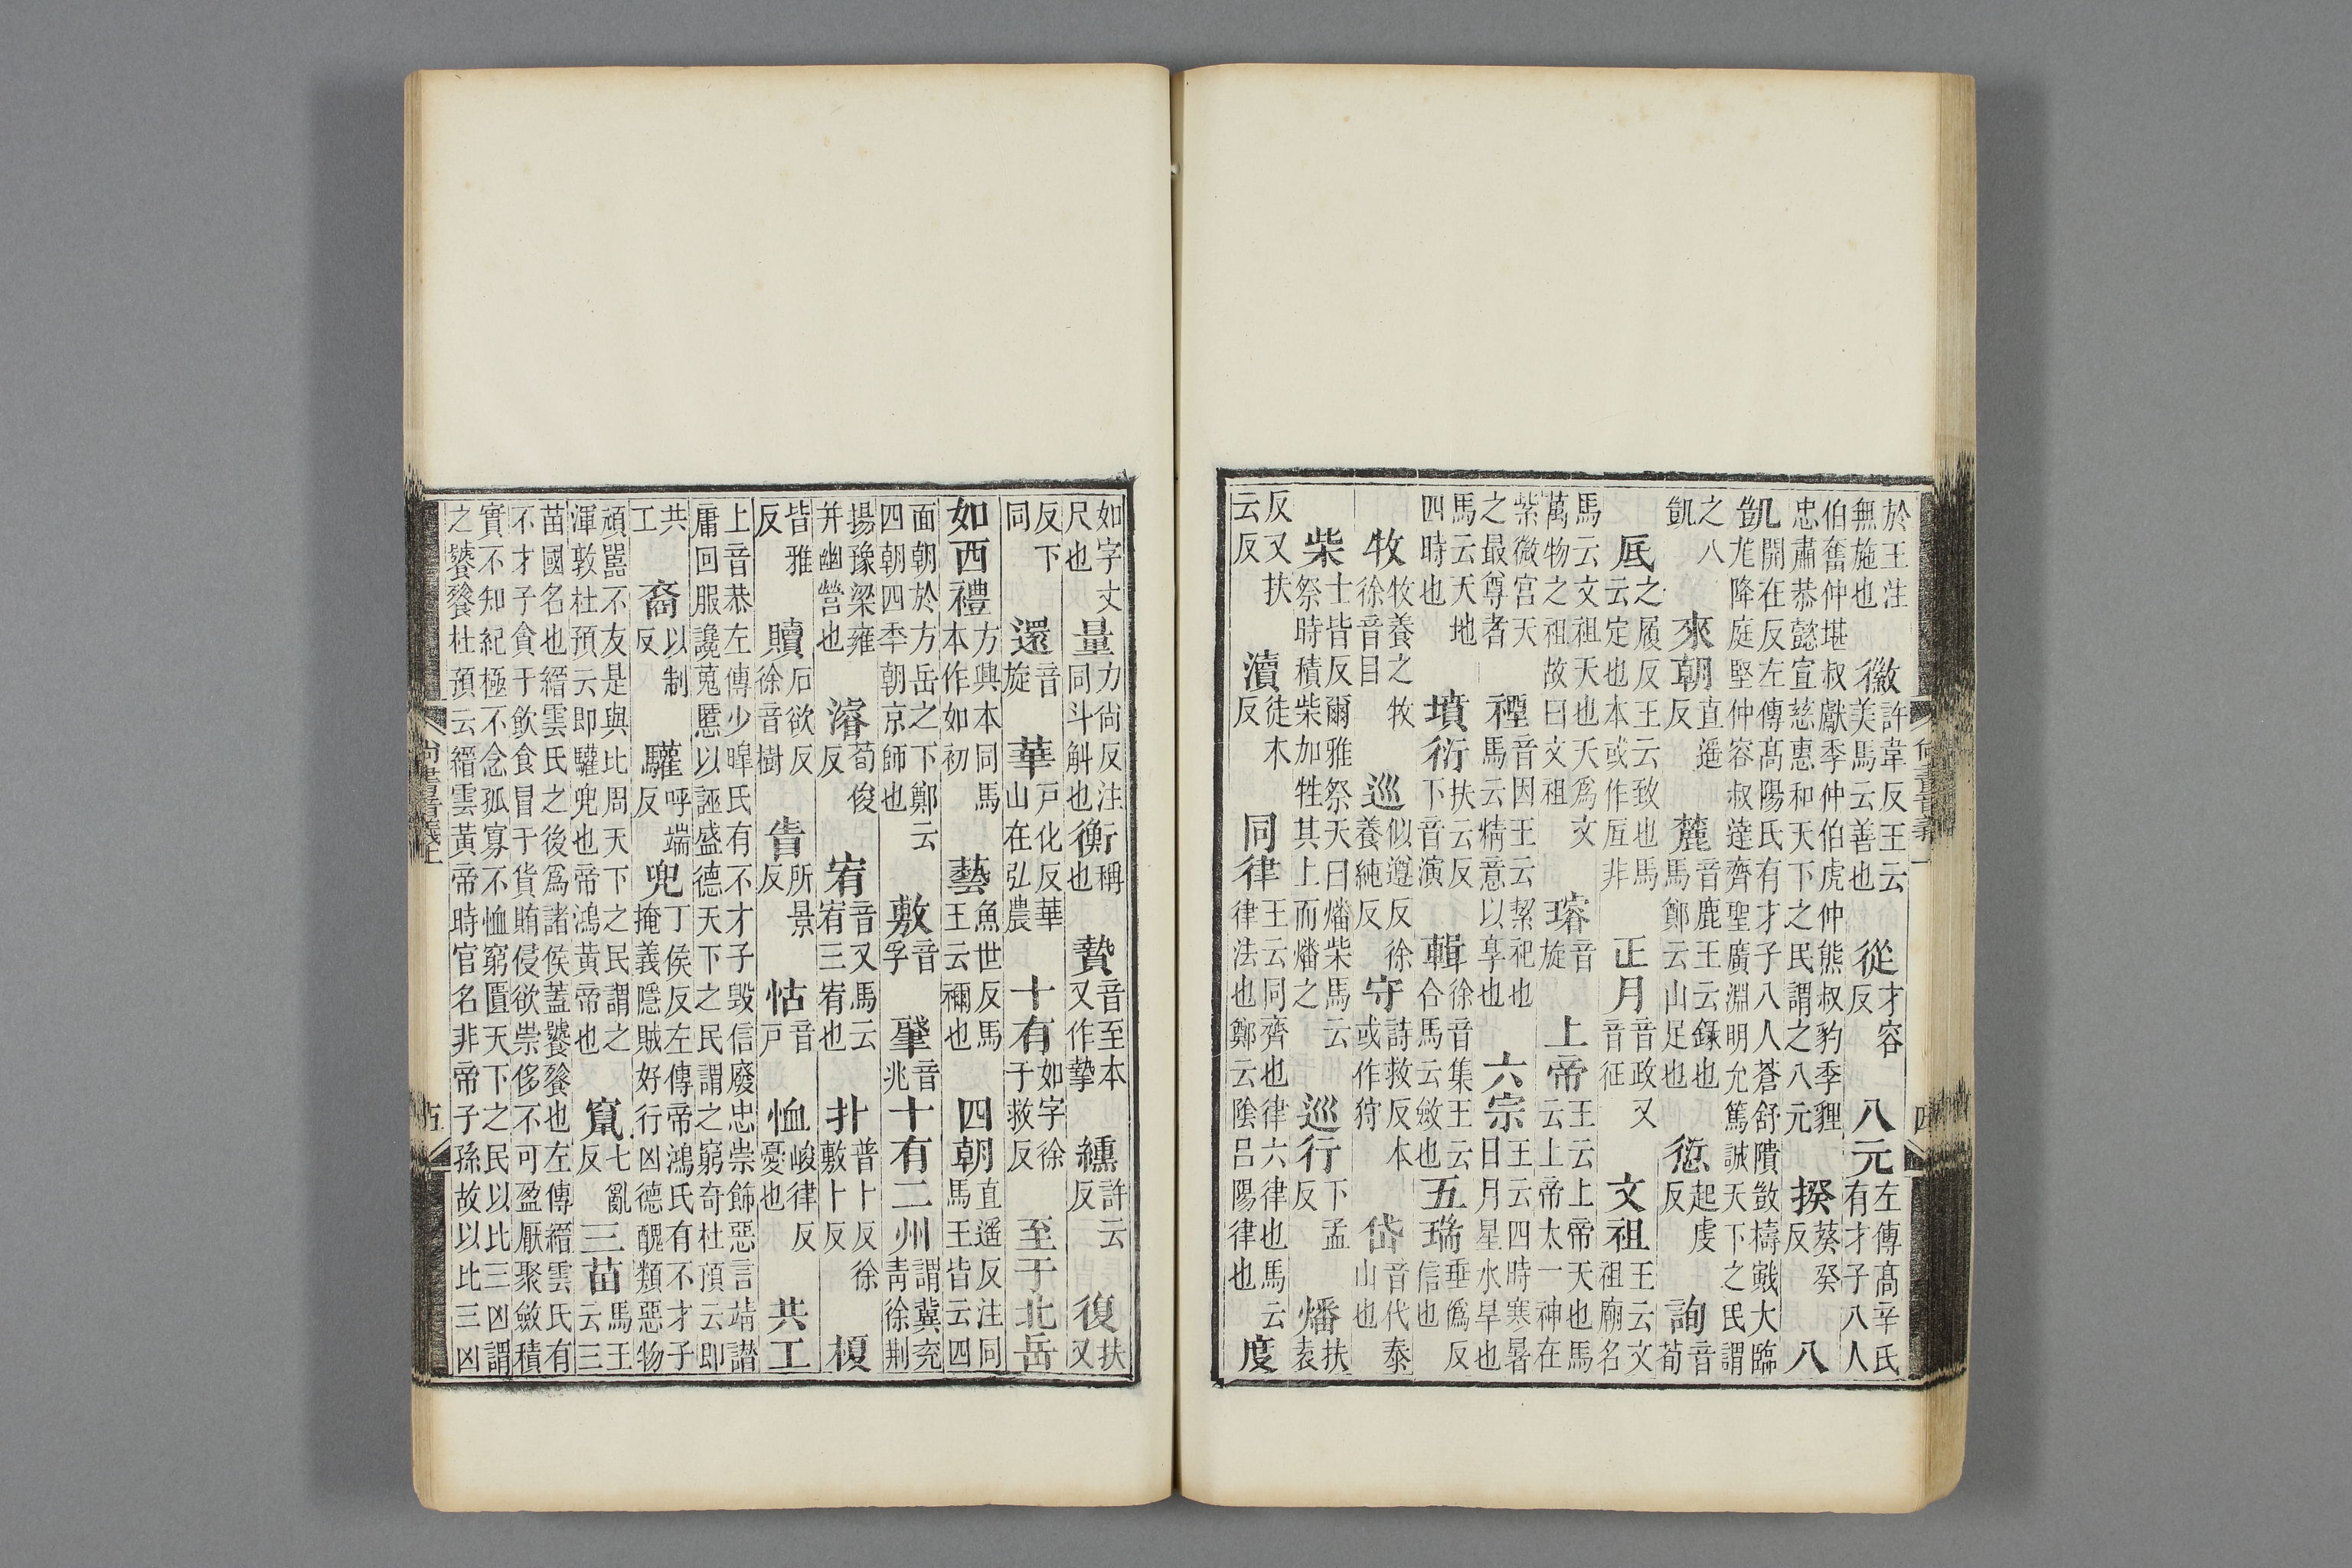 於王注無施也徽許韋反王云美馬云善也從才容反八元左傳髙辛氏有才子八人
伯奮仲堪叔獻季仲伯虎仲熊叔豹季貍忠肅恭懿宣慈惠和天下之民謂之八元揆葵癸反八
凱開在反左傳髙陽氏有才子八人蒼舒隤敳檮戭大臨尨降庭堅仲容叔達齊聖廣淵明允篤誠天下之民謂
之八凱來朝直遥反麓音鹿王云錄也馬鄭云山足也愆起虔反詢音荀
厎之履反王云致也馬云定也本或作非正月音政又音征文祖王云文祖廟名
馬云文祖天也天爲文萬物之祖故曰文祖璿音旋上帝王云上帝天也馬云上帝太一神在
紫微宮天之最尊者禋音因王云絜祀也馬云精意以享也六宗王云四時寒暑日月星水旱也
馬云天地四時也墳衍扶云反下音演輯徐音集王云合馬云斂也五瑞垂僞反信也
牧牧養之牧徐音目巡似遵反徐養純反守詩救反本或作狩岱音代泰山也
柴士皆反爾雅祭天曰燔柴馬云祭時積柴加牲其上而燔之巡行下孟反燔扶袁
反又扶云反瀆徒木反同律王云同齊也律六律也馬云律法也鄭云陰呂陽律也度
如字丈尺也量力尙反注同斗斛也衡稱也贄音至本又作摯纁許云反復扶又
反下同還音旋華戶化反華山在弘農十有如字徐于救反至于北岳
如西禮方興本同馬本作如初藝魚世反馬王云禰也四朝直遥反注同馬王皆云四
面朝於方岳之下鄭云四朝四季朝京師也敷音孚肇音兆十有二州謂冀兖靑徐荆
揚豫梁雍并幽營也濬荀俊反宥音又馬云宥三宥也扑普卜反徐敷卜反榎
皆雅反贖石欲反徐音樹眚所景反怙音戶恤峻律反憂也共工
上音恭左傳少皥氏有不才子毁信廢忠崇飾惡言靖譖庸回服讒蒐慝以誣盛德天下之民謂之窮奇杜預云即
共工裔以制反驩呼端反兜丁侯反左傳帝鴻氏有不才子掩義隱賊好行凶德醜類惡物
頑嚚不友是與比周天下之民謂之渾敦杜預云即驩兜也帝鴻黃帝也竄七亂反三苗馬王云三
苗國名也縉雲氏之後爲諸侯蓋饕餮也左傳縉雲氏有不才子貪于飲食冒于貨賄侵欲崇侈不可盈厭聚斂積
實不知紀極不念孤寡不恤窮匱天下之民以比三凶謂之饕餮杜預云縉雲黃帝時官名非帝子孫故以比三凶
尚書音義上